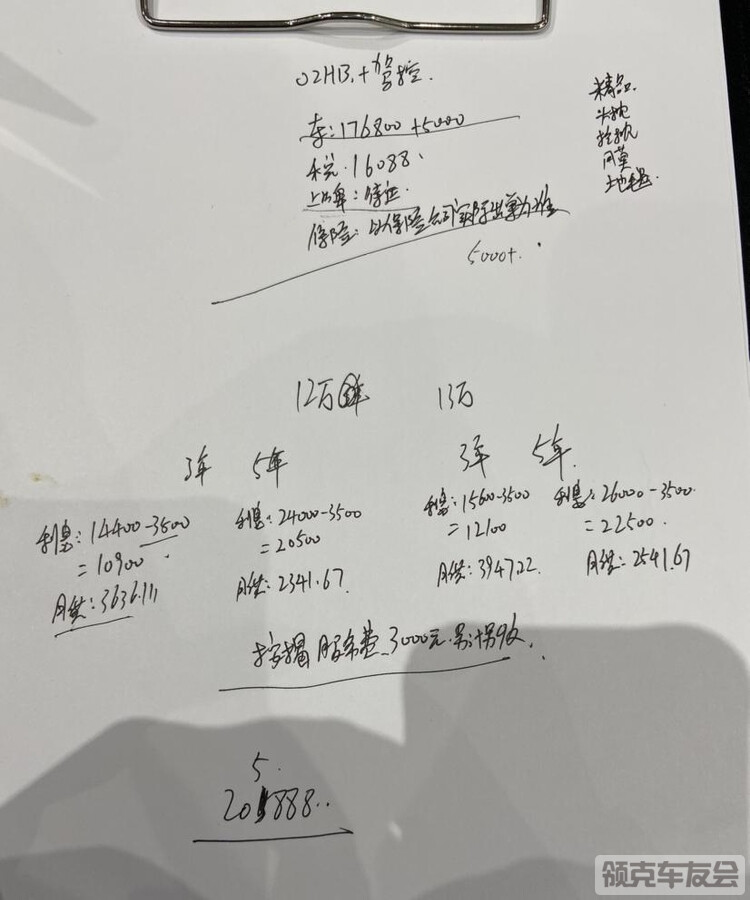 02HB+驾控.
车:176800+5000
税:16088.
上牌:
保险:以保险公司实际出单为准
5000+.
精品.
头枕
抱枕
月莫
土地毯
12万
13万
3年 5年
3年 5年.
利息:14400-3500
=10900
月供:3636.111
利息:24000-3500
=20500
月供:2341.67.
利息:15600-3500
=12100
月供:3947.22.
利息:26000-3500.
=22500.
月供:2541.67
按揭服务费 3000元.另外收.
5.
20 888..
领克车友会